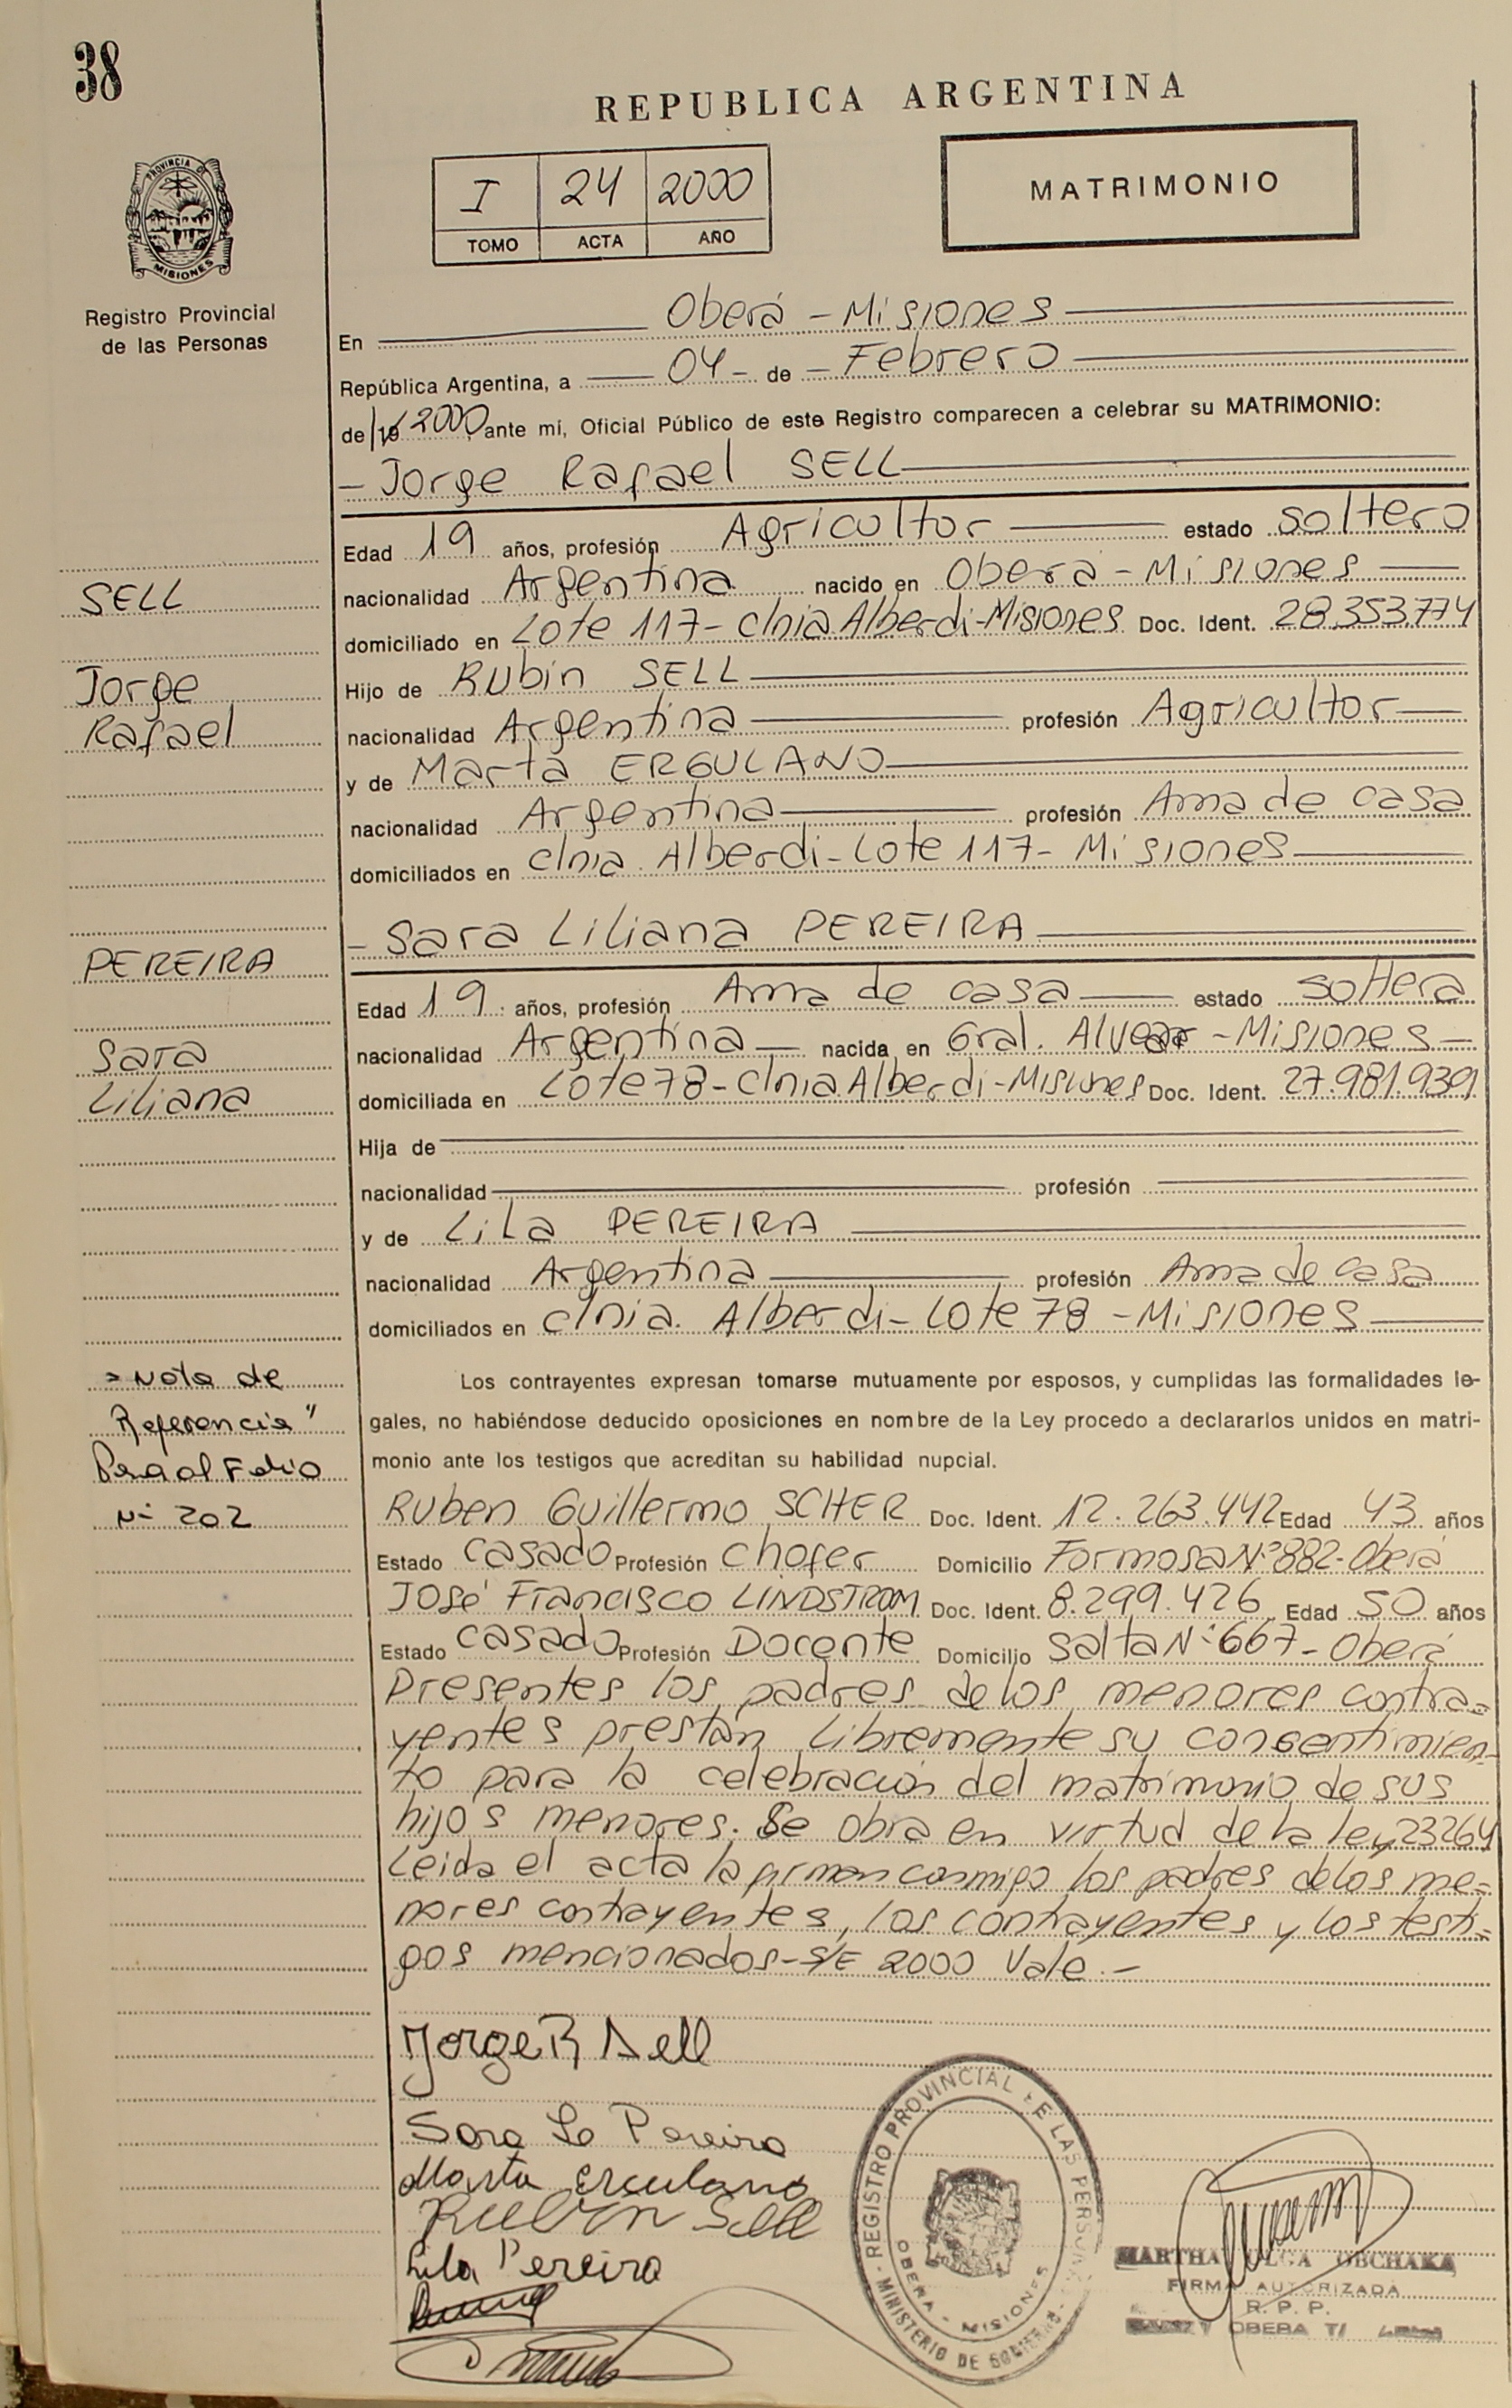 38
REPUBLICA ARGENTINA
PROVINCIA DE
MISIONES
Registro Provincial
de las Personas
I 24 2000
TOMO ACTA AÑO
MATRIMONIO
En Oberá - Misiones
República Argentina, a 04 - de - Febrero
de 19 2000 ante mí, Oficial Público de este Registro comparecen a celebrar su MATRIMONIO:
- Jorge Rafael SELL
Edad 19 años, profesión Agricultor estado soltero
SELL
nacionalidad Argentina nacido en Oberá - Misiones
domiciliado en Lote 117 - Clnia Alberdi - Misiones Doc. Ident. 28.353.774
Jorge
Hijo de Rubin SELL
Rafael
nacionalidad Argentina profesión Agricultor
y de Marta ERGULANO
nacionalidad Argentina profesión Ama de casa
domiciliados en clnia. Alberdi - Lote 117 - Misiones
- Sara Liliana PEREIRA
PEREIRA
Edad 19 años, profesión Ama de casa estado soltera
Sara
nacionalidad Argentina nacida en Gral. Alvear - Misiones -
Liliana
domiciliada en Lote 78 - Clnia Alberdi - Misiones Doc. Ident. 27.981.939
Hija de
nacionalidad profesión
y de Lila PEREIRA
nacionalidad Argentina profesión Ama de casa
domiciliados en clnia. Alberdi - Lote 78 - Misiones
Nota de
Referencia"
Pasa al Folio
Nº 202
Los contrayentes expresan tomarse mutuamente por esposos, y cumplidas las formalidades le-
gales, no habiéndose deducido oposiciones en nombre de la Ley procedo a declararlos unidos en matri-
monio ante los testigos que acreditan su habilidad nupcial.
Ruben Guillermo SCHER Doc. Ident. 12.263.442 Edad 43 años
Estado Casado Profesión Chofer Domicilio Formosa Nº 882 - Oberá
José Francisco LINDSTROM Doc. Ident. 8.299.426 Edad 50 años
Estado Casado Profesión Docente Domicilio Salta Nº 667 - Oberá
Presentes los padres de los menores contra=
yentes prestan libremente su consentimien-
to para la celebración del matrimonio de sus
hijos menores. Se obra en virtud de la ley 23264
Leida el acta la firman conmigo los padres de los me=
nores contrayentes, los contrayentes y los testi=
gos mencionados - S/E 2000 Vale. -
Jorge R Sell
Sara L Pereira
Marta Erculano
Rubin Sell
Lila Pereira
REGISTRO PROVINCIAL DE LAS PERSONAS
OBERA - MISIONES
MINISTERIO DE GOBIERNO
MARTHA OLGA OBCHAKA
FIRMA AUTORIZADA
R. P. P.
OBERA